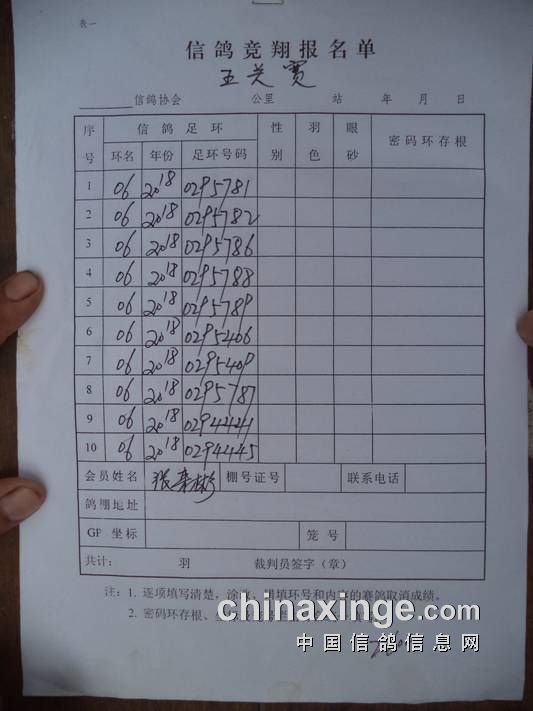 表一
信鸽竞翔报名单
五关赛
信鸽协会 公里 站 年 月 日
序号 信鸽足环 性别 羽色 眼砂 密码环存根
环名 年份 足环号码
1 06 2018 0295781
2 06 2018 0295782
3 06 2018 0295786
4 06 2018 0295788
5 06 2018 0295789
6 06 2018 0295406
7 06 2018 0295409
8 06 2018 0295787
9 06 2018 0294441
10 06 2018 0294445
会员姓名 张 彬 棚号证号 联系电话
鸽棚地址
GP 坐标 笼号
共计: 羽 裁判员签字(章)
注:1. 逐项填写清楚,涂改、错填环号和内容的赛鸽取消成绩。
2. 密码环存根、
chinaxinge.com
中国信鸽信息网